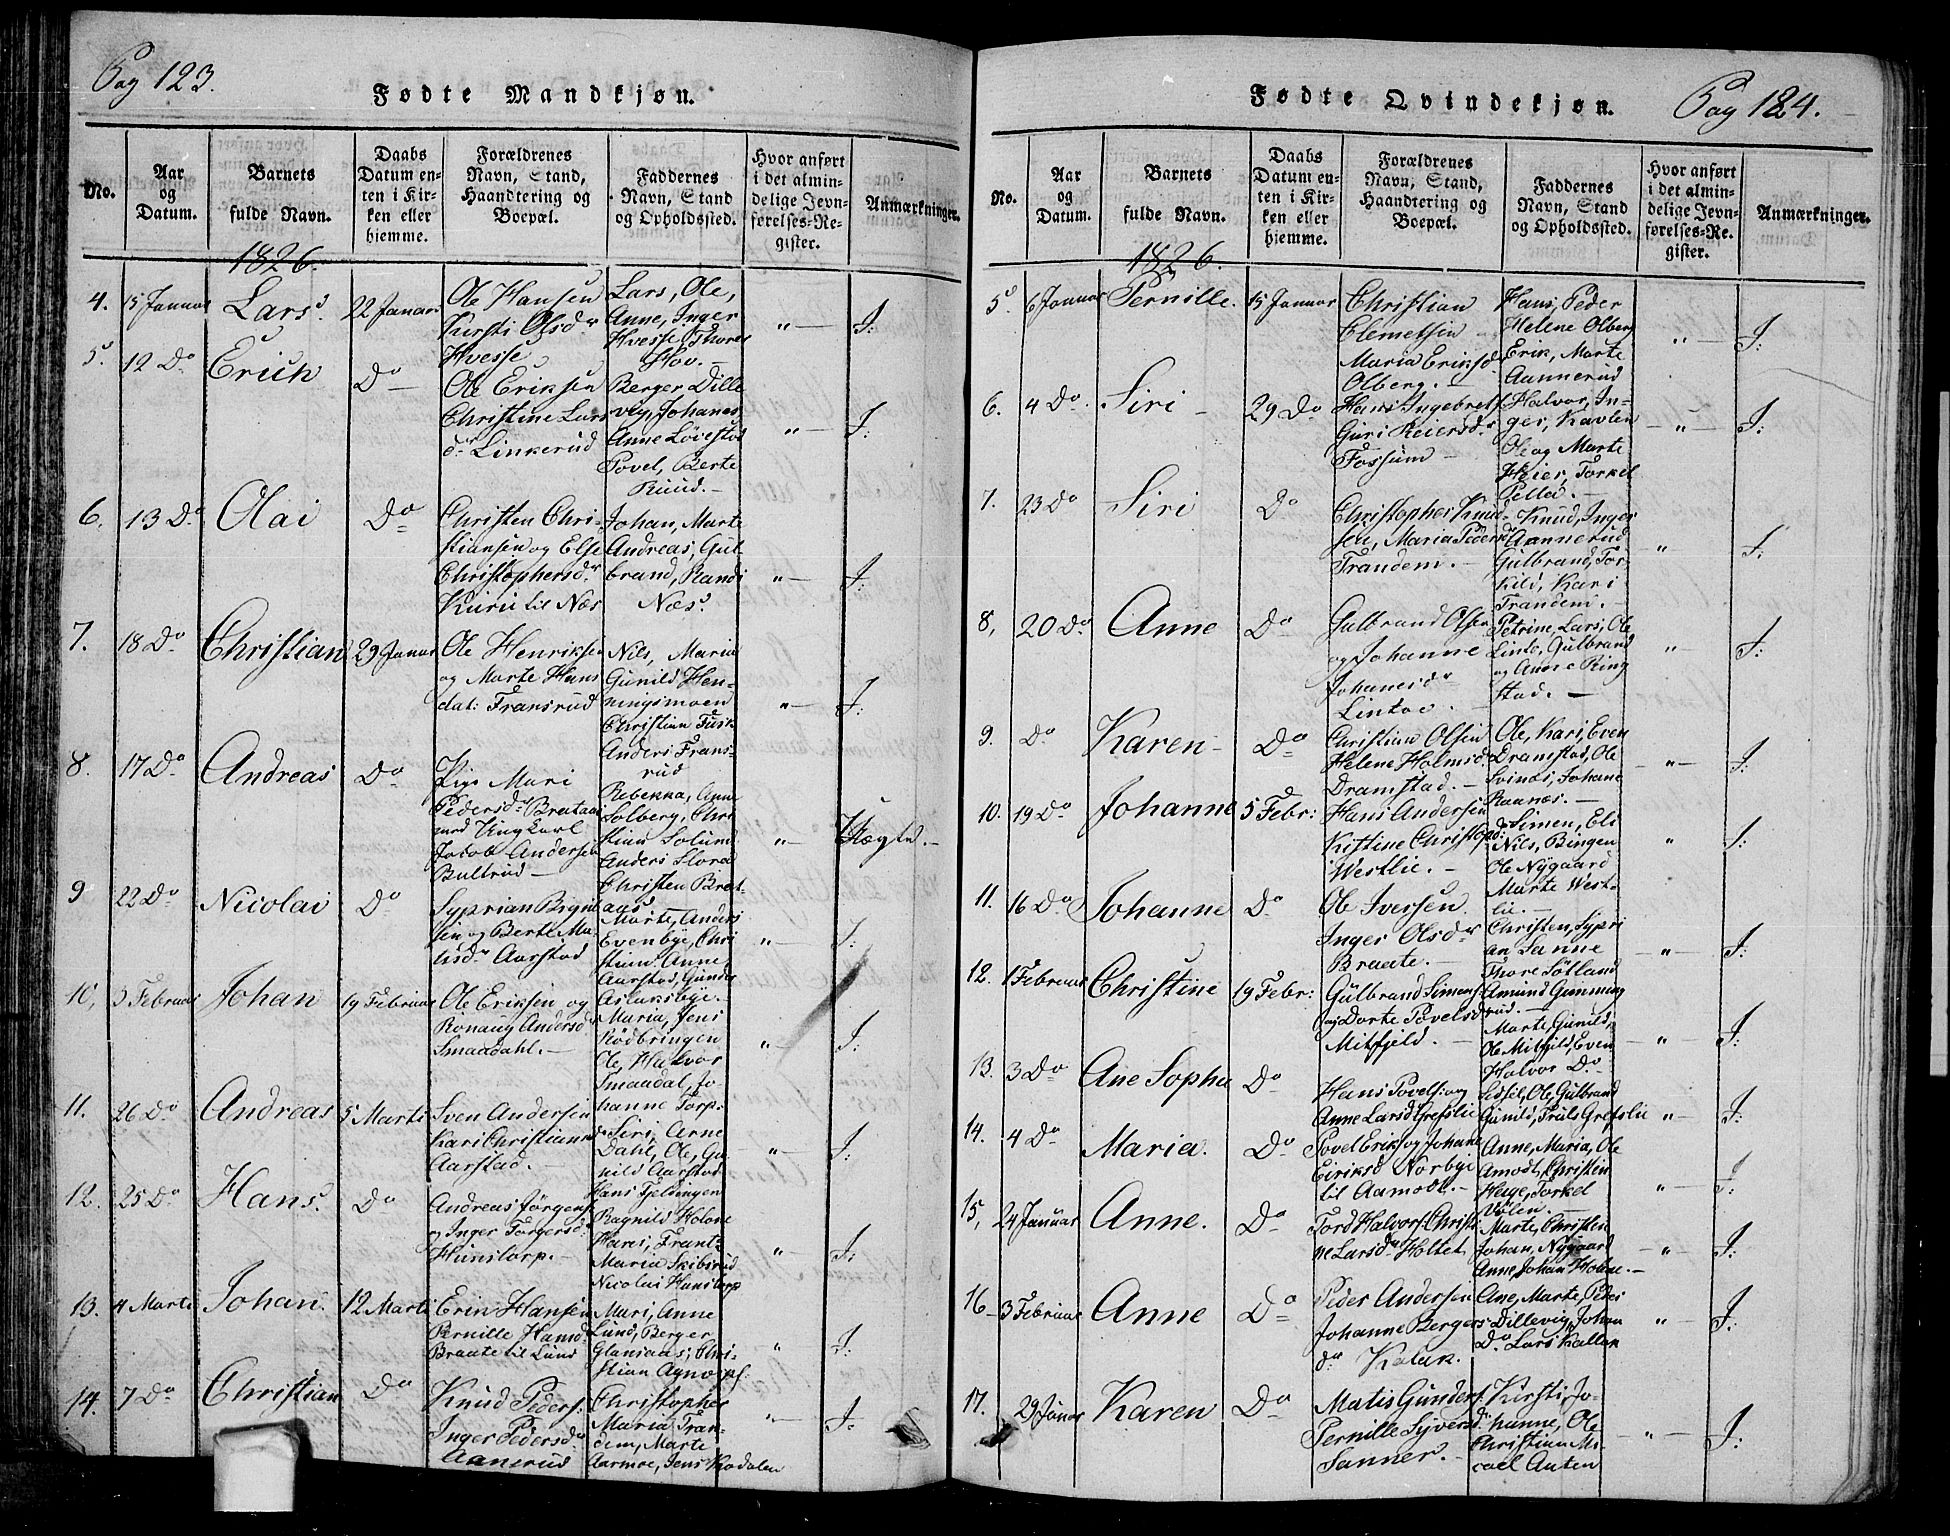 Pag 123.
Fødte Mandkjøn.
No.
Aar og Datum.
Barnets fulde Navn.
Daabs Datum enten i Kirken eller hjemme.
Forældrenes Navn, Stand, Haandtering og Boepæl.
Faddernes Navn, Stand og Opholdssted.
Hvor anført i det almindelige Jevnførelses-Register.
Anmærkninger.
1826.
4. 15 Januar Lars. 22 Januar
Ole Hansen
Kirsti Olsdr
Hvesse
Lars, Ole,
Anne, Inger
Hvesse, Thores
Hov.
" J:
5. 12 Do Erich Do
Ole Eriksen
Christine Lars
dr Linkerud
Berger Dille
vig, Johanes
Anne Løvestad
Povel, Berte
Ruud.
" J:
6. 13 Do Olai Do
Christen Chri-
stiansen og Else
Christophersdr
til Næs
Johan, Marte
Andreas, Gul
brand, Randi
Næs.
" J:
7. 18 Do Christian 29 Januar
Ole Henriksen
og Marte Hans
dat: Fransrud
Nils, Maria
Gunild Hen-
ningsmoen
Christian
Anders Frans-
rud
" J:
8. 17 Do Andreas Do
Pige Mari
Pedersdr Braataas
med Ungkarl
Jacob Andersen
Bultrud
Rebekka, Anne
Solberg, Chri
stian Solum
Anders Slora
Christen Brat-
aas
" Uægte.
9 22 Do Nicolai Do
Syprian
sen og Berte Ma-
tisdr Aarstad
Marte, Anders
Evenbye, Chri
stian Anne
Aarstad, Gunder
Aslaksbye.
" J:
10, 5 Februar Johan 19 Februar
Ole Eriksen og
Ronaug Andersdr
Smaadahl.
Maria, Jens
Rödbringen
Ole, Halvor
Smaadal, Jo
hanne Torp.
" J:
11. 26 Do Andreas 5 Marti
Sven Andersen
Kari Christians
Aarstad.
Siri, Arne
Dahl, Ole, Gu
nild Aarstad
" J:
12. 25 Do Hans. Do
Andreas Jörgens
og Inger Torgersdr
Hunstorp.
Hans Tjelsingen
Ragnild Holone
Hans, Frantz
Maria Skibsrud
Nicolai Hunstorp
" J:
13. 4 Marti Johan. 12 Marti
Erik Hansen
Pernille Hansd
Braate til Lund
Mari, Anne
Lund, Berger
Glaniaas, Chri-
stian
" J:
14. 7 Do Christian Do
Knud Peders.
Inger Pedersdr
Aanerud
Christopher
Maria Tran-
dem, Marte
Aarmoe, Jens Kodalen
" J:
Fødte Qvindekjøn.
Pag 124.
No.
Aar og Datum.
Barnets fulde Navn.
Daabs Datum enten i Kirken eller hjemme.
Forældrenes Navn, Stand, Haandtering og Boepæl.
Faddernes Navn, Stand og Opholdssted.
Hvor anført i det almindelige Jevnførelses-Register.
Anmærkninger.
1826.
5. 6 Januar Pernille. 15 Januar
Christian
Clemetsen
Maria Eriksdr
Olberg.
Hans, Peder
Helene Olberg
Erik, Marte
Aannerud
" J:
6. 4 Do. Siri 29 Do
Hans Ingebrets
Guri Reiersdr
Fossum
Halvor, In-
ger, Kavlen
Ole og Marte
Heier, Torkel
" J:
7. 23 Do Siri Do
Christopher Knud
sen, Maria Pedersd
Trandem.
Knud, Inger
Aannerud
Gulbrand, Tor-
kild, Kari
Trandem.
" J:
8, 20 Do Anne Do
Gulbrand Olsen
og Johanne
Johanesdr
Lintoe.
Petrine, Lars, Ole
Linto, Gulbrand
og Anne Ring
stad.
" J:
9. Do Karen Do
Christian Olsen
Helene Holmsdr
Dramstad.
Ole, Kari, Even
Dramstad, Ole
Svinds, Johane
Raanæs.
" J:
10. 19 Do Johanne 5 Febr:
Hans Andersen
Kistine Christofd:
Westlie.
Simen, Eli
Nils, Bingen
Ole Nygaard
Marte West-
lie.
" J:
11. 16 Do Johanne Do
Ole Iversen
Inger Olsdr
Braate.
Christen, Sypri
an Sanne
Thore Sötland
Amund Gumming
rud.
" J:
12. 1 Februar Christine 19 Febr:
Gulbrand Simens
og Dorte Povelsd
Mitfjeld.
Marte, Gunild,
Ole Mitfjeld, Even
Halvor Do
" J:
13. 3 Do Ane Sophie Do
Hans Povels. og
Anne Larsd Grefslie
Sidsel, Ole, Gulbrand
Gunild, Truls Grefslie
" J:
14. 4 Do Maria. Do
Povel Eriks og Johane
Eiriksd Norbye
til Aamodt.
Anne, Maria, Ole
Amodt, Christen
Heye, Torkel
" J:
15, 24 Januar Anne. Do
Tord Halvors. Christi
ne Larsdr Holtet
Marte, Christen
Johan, Nygaard
Anne, Johan Holene.
" J:
16 3 Februar Anne Do
Peder Andersen
Johanne Bergers
dr Kalak.
Ane, Marte, Peder
Dillevig, Johan
Do Lars Kallak
" J:
17. 29 Januar Karen Do
Matis Gunders.
Pernille Syversd
Sanner.
Kirsti, Jo-
hanne, Ole
Christian Mi
cael Auten
" J: